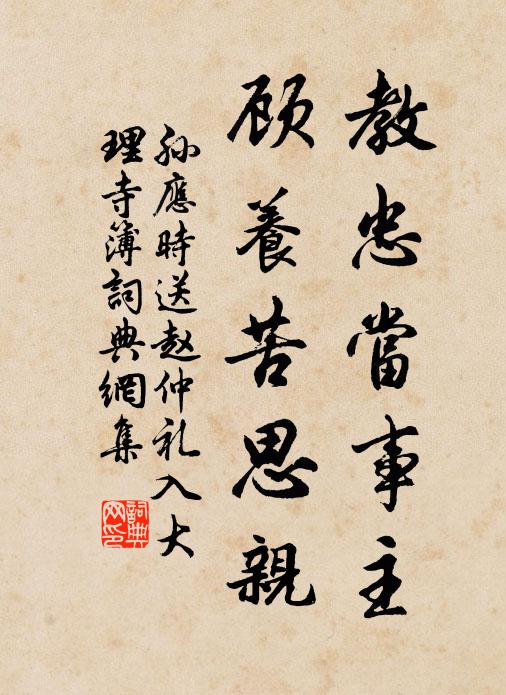 教忠當事主
顧養苦思親
孙應時送赵仲礼入大
理寺簿詞典網集
詞典网印